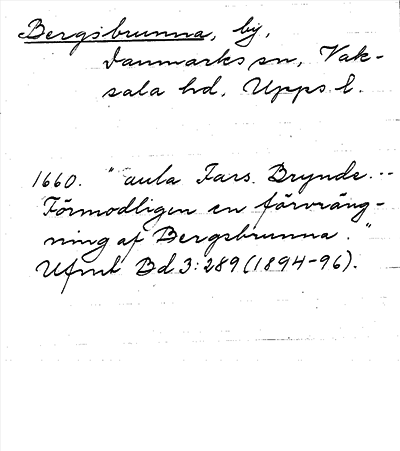 Bergsbrunna, by,
Danmarks sn, Vak-
sala hd, Upps. l.
1660. "aula Fars. Brynde...
Förmodligen en förvräng-
ning af Bergsbrunna."
Ufmt Bd 3:289 (1894-96).